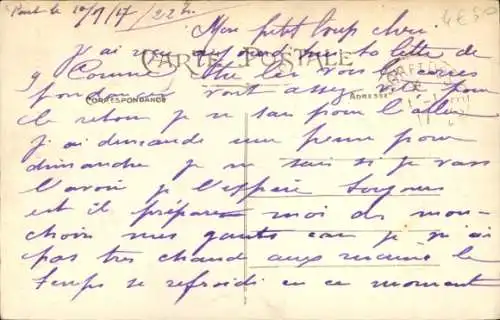 Paul le 10/9/17 222.
4E50
Mon petit loup cheri
J'ai reçu aujourd'hui ta lettre de
CARTE POSTALE
9 Comme
tu vois les corres
pondances vont assez vite pour
CORRESPONDANCE
ADRESSE
le retour je ne sais pour l'aller
j'ai demandé une perme pour
dimanche je ne sais si je vais
l'avoir je l'espère toujours
est il prépare moi des mou-
choirs mes gants car je n'ai
pas tres chaud aux mains le
temps se refroidi en ce moment